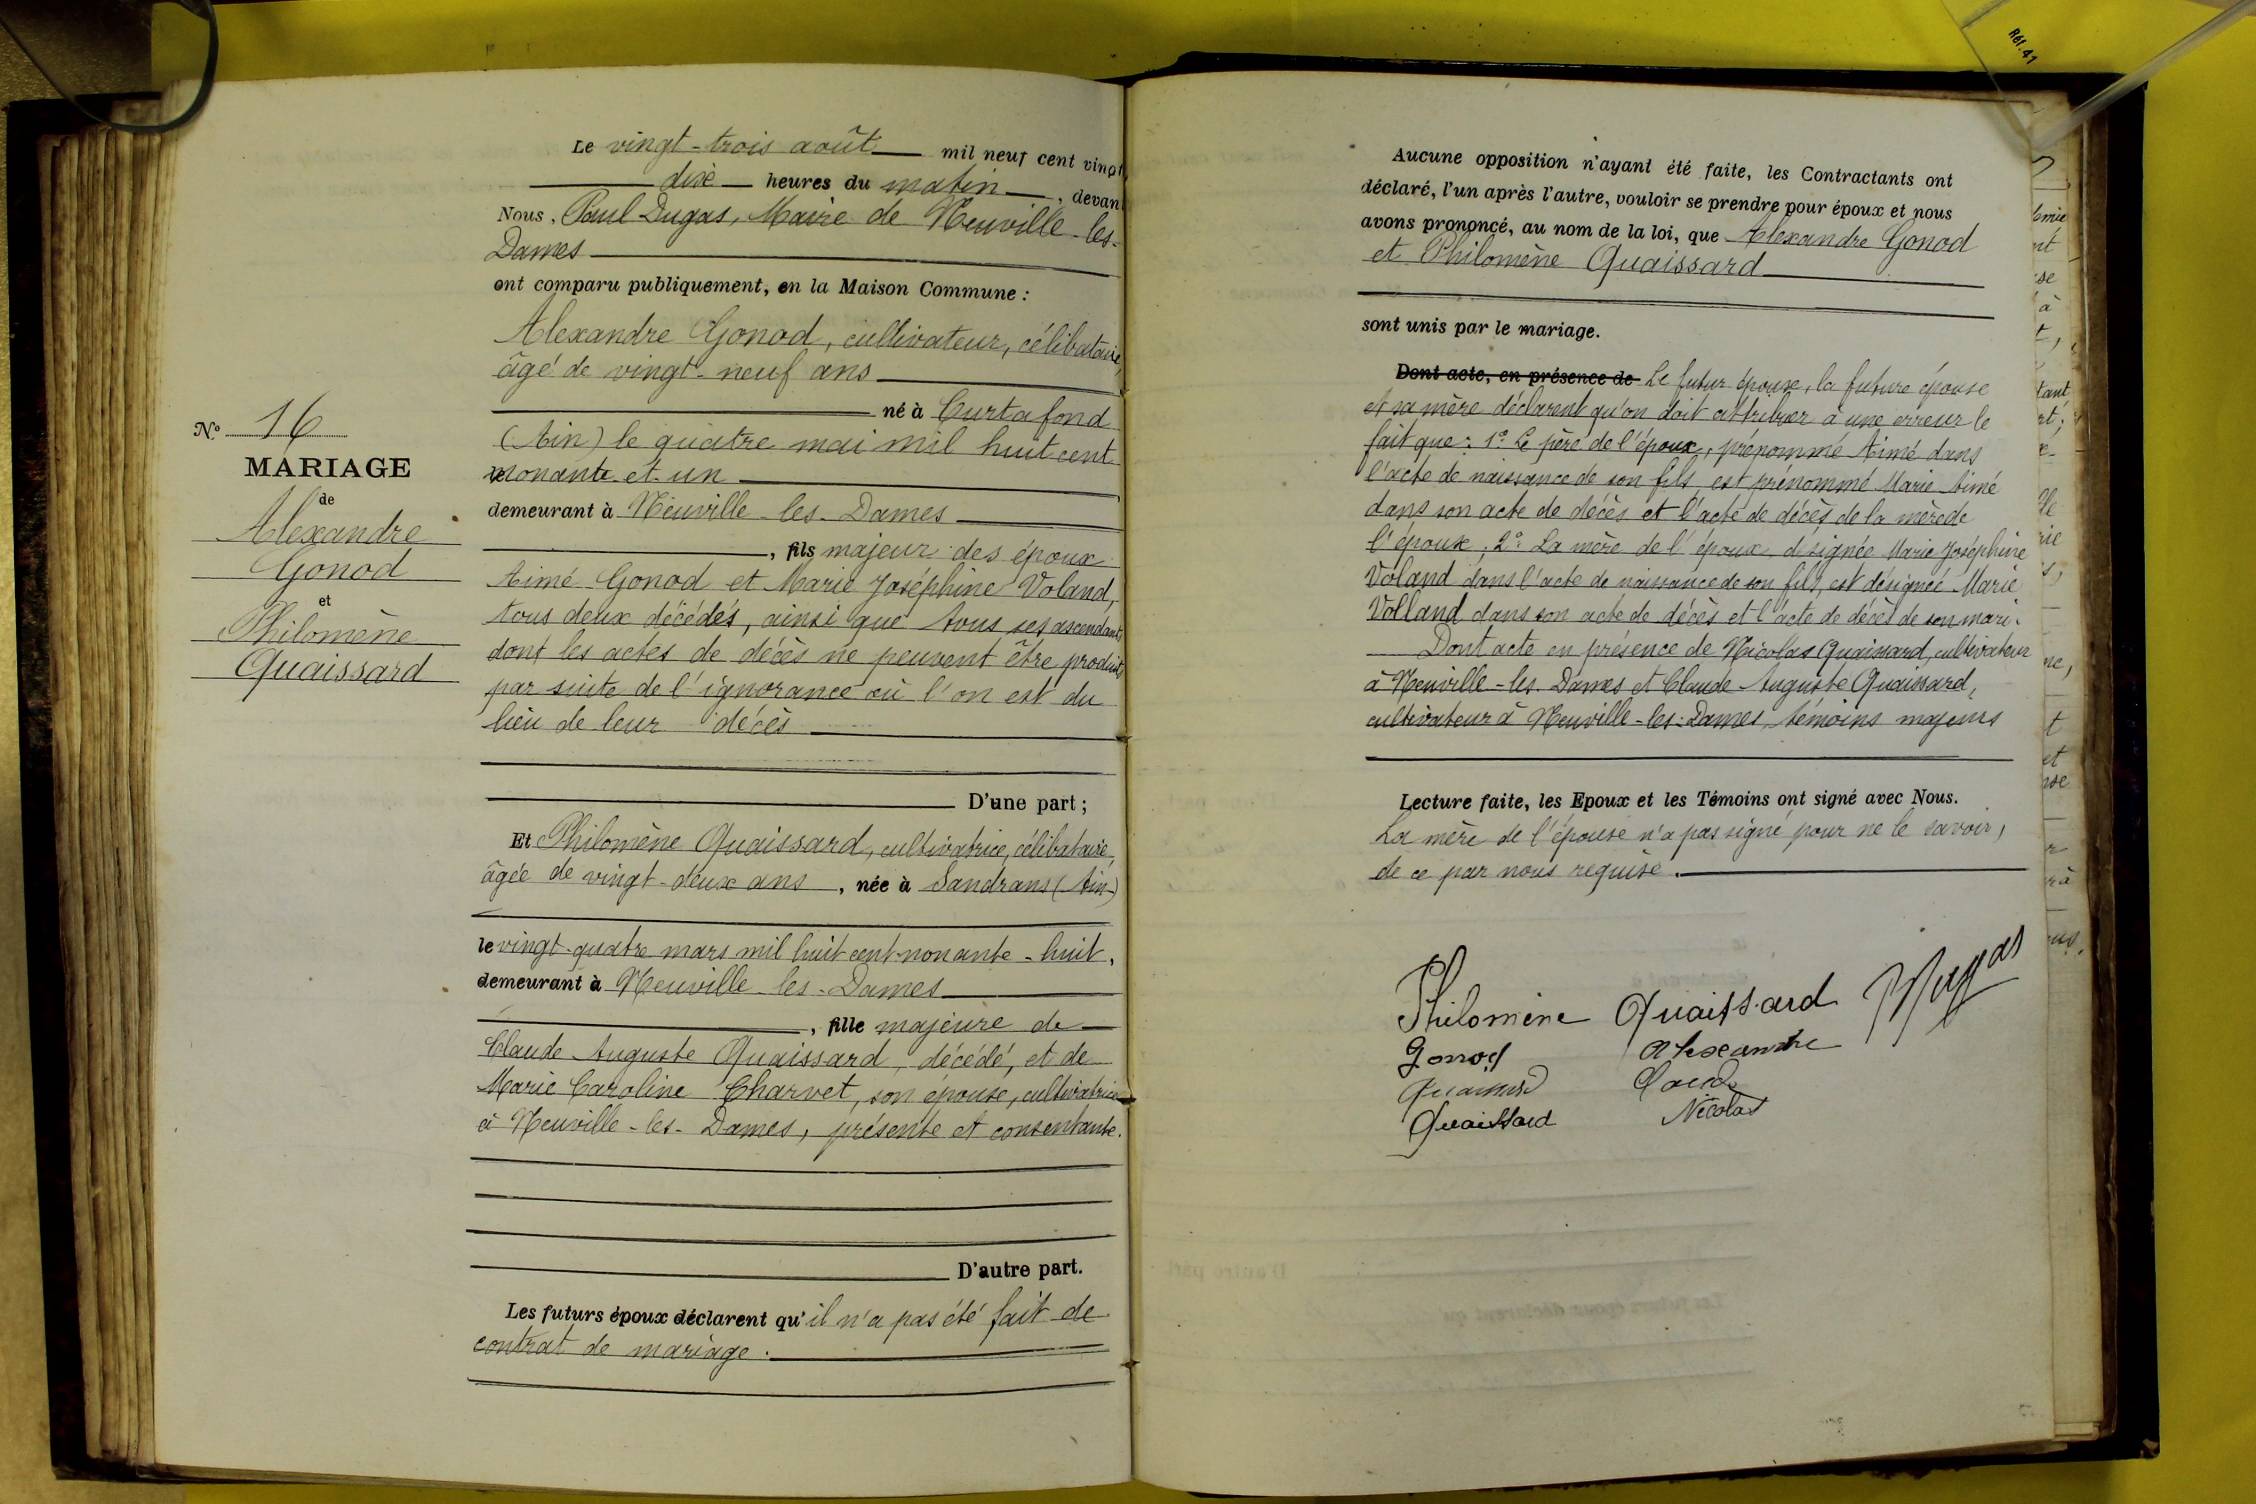 Réf. 41
Le vingt-trois août mil neuf cent vingt
dix heures du matin, devan
Nous, Paul Dugas, Maire de Neuville-les-
Dames
ont comparu publiquement, en la Maison Commune :
Alexandre Gonod, cultivateur, célibataire,
âgé de vingt-neuf ans
né à Curtafond
(Ain) le quatre mai mil huit cent
nonante et un
demeurant à Neuville-les-Dames
, fils majeur des époux
Aimé Gonod et Marie Joséphine Voland,
tous deux décédés, ainsi que tous ses ascendants
dont les actes de décès ne peuvent être produits
par suite de l'ignorance où l'on est du
lieu de leur décès
D'une part ;
Et Philomène Quaissard, cultivatrice, célibataire,
âgée de vingt-deux ans, née à Sandrans (Ain)
le vingt-quatre mars mil huit cent nonante-huit,
demeurant à Neuville-les-Dames
, fille majeure de
Claude Auguste Quaissard, décédé, et de
Marie Caroline Charvet, son épouse, cultivatrice
à Neuville-les-Dames, présente et consentante.
D'autre part.
Les futurs époux déclarent qu'il n'a pas été fait de
contrat de mariage.
N° 16
MARIAGE
de
Alexandre
Gonod
et
Philomène
Quaissard
Aucune opposition n'ayant été faite, les Contractants ont
déclaré, l'un après l'autre, vouloir se prendre pour époux et nous
avons prononcé, au nom de la loi, que Alexandre Gonod
et Philomène Quaissard
sont unis par le mariage.
Dont acte, en présence de Le futur époux, la future épouse
et sa mère déclarent qu'on doit attribuer à une erreur le
fait que : 1° Le père de l'époux, prénommé Aimé dans
l'acte de naissance de son fils, est prénommé Marie Aimé
dans son acte de décès et l'acte de décès de la mère de
l'époux ; 2° La mère de l'époux désignée Marie Joséphine
Voland dans l'acte de naissance de son fils, est désignée Marie
Volland dans son acte de décès et l'acte de décès de son mari.
Dont acte en présence de Nicolas Quaissard, cultivateur
à Neuville-les-Dames et Claude Auguste Quaissard,
cultivateur à Neuville-les-Dames, témoins majeurs
Lecture faite, les Epoux et les Témoins ont signé avec Nous.
La mère de l'épouse n'a pas signé pour ne le savoir,
de ce par nous requise.
Philomène Quaissard Dugas
Gonod Alexandre
Quaissard
Quaissard Nicolas